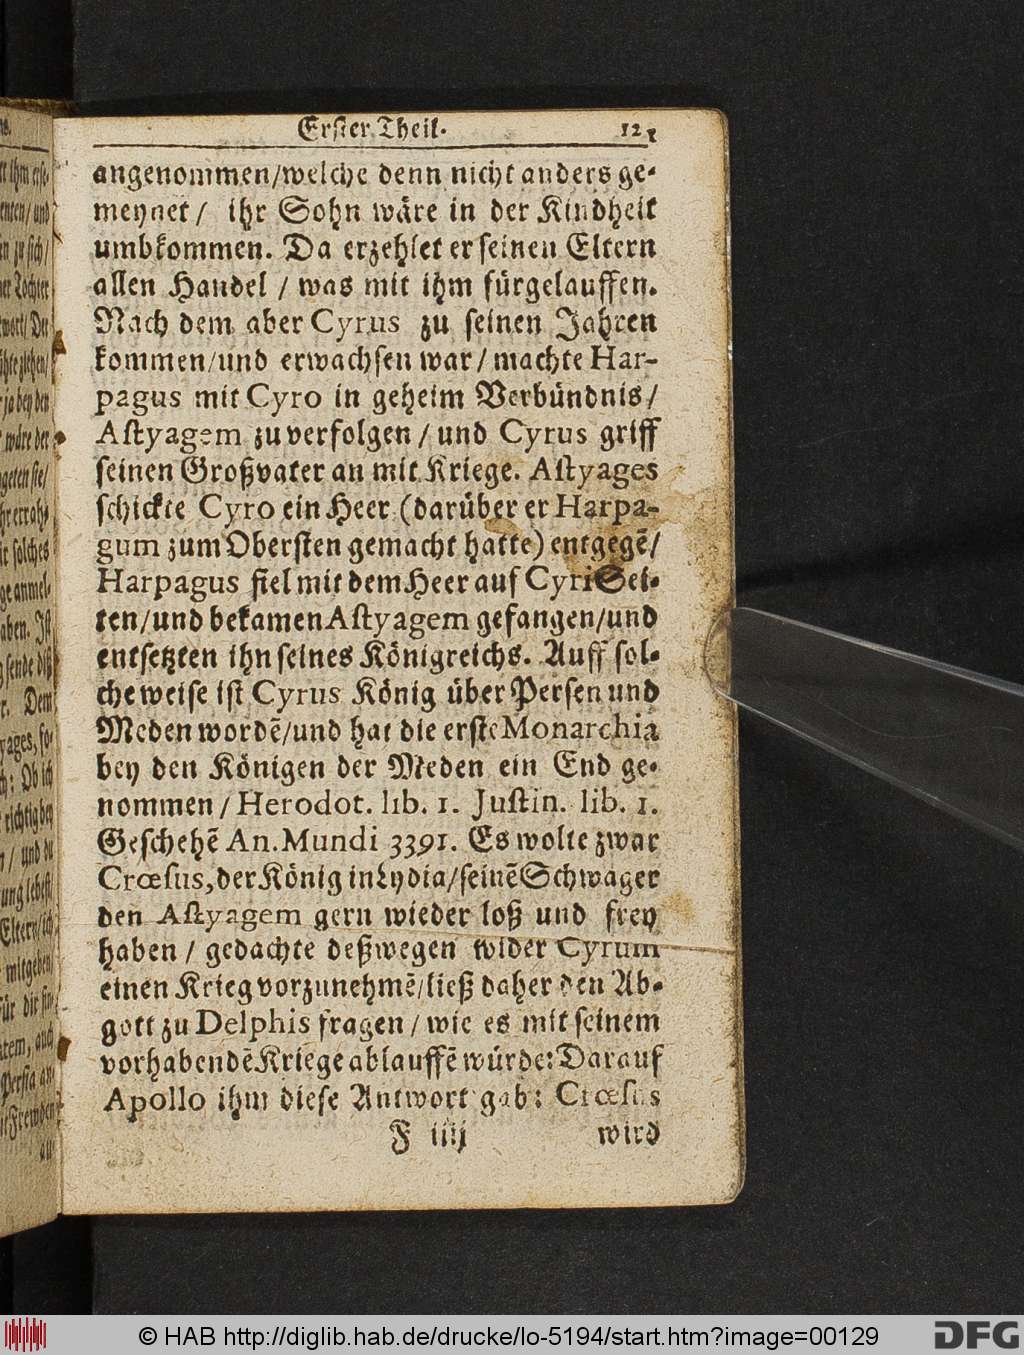 Erster Theil. 121
angenommen/welche denn nicht anders ge-
meynet / ihr Sohn wäre in der Kindheit
umbkommen. Da erzehlet er seinen Eltern
allen Handel / was mit ihm fürgelauffen.
Nach dem aber Cyrus zu seinen Jahren
kommen/und erwachsen war / machte Har-
pagus mit Cyro in geheim Verbündnis /
Astyagem zu verfolgen / und Cyrus griff
seinen Großvater an mit Kriege. Astyages
schickte Cyro ein Heer (darüber er Harpa-
gum zum Obersten gemacht hatte) entgegẽ/
Harpagus fiel mit dem Heer auf Cyri Sei-
ten/und bekamen Astyagem gefangen/und
entsetzten ihn seines Königreichs. Auff sol-
che weise ist Cyrus König über Persen und
Meden wordẽ/und hat die erste Monarchia
bey den Königen der Meden ein End ge-
nommen / Herodot. lib. 1. Justin. lib. 1.
Geschehẽ An. Mundi 3391. Es wolte zwar
Crœsus, der König in Lydia/seinẽ Schwager
den Astyagem gern wieder loß und frey
haben / gedachte deßwegen wider Cyrum
einen Krieg vorzunehmẽ/ließ daher den Ab-
gott zu Delphis fragen / wie es mit seinem
vorhabendẽ Kriege ablauffẽ würde: Darauf
Apollo ihm diese Antwort gab: Crœsus
F iiij wird
© HAB http://diglib.hab.de/drucke/lo-5194/start.htm?image=00129
DFG